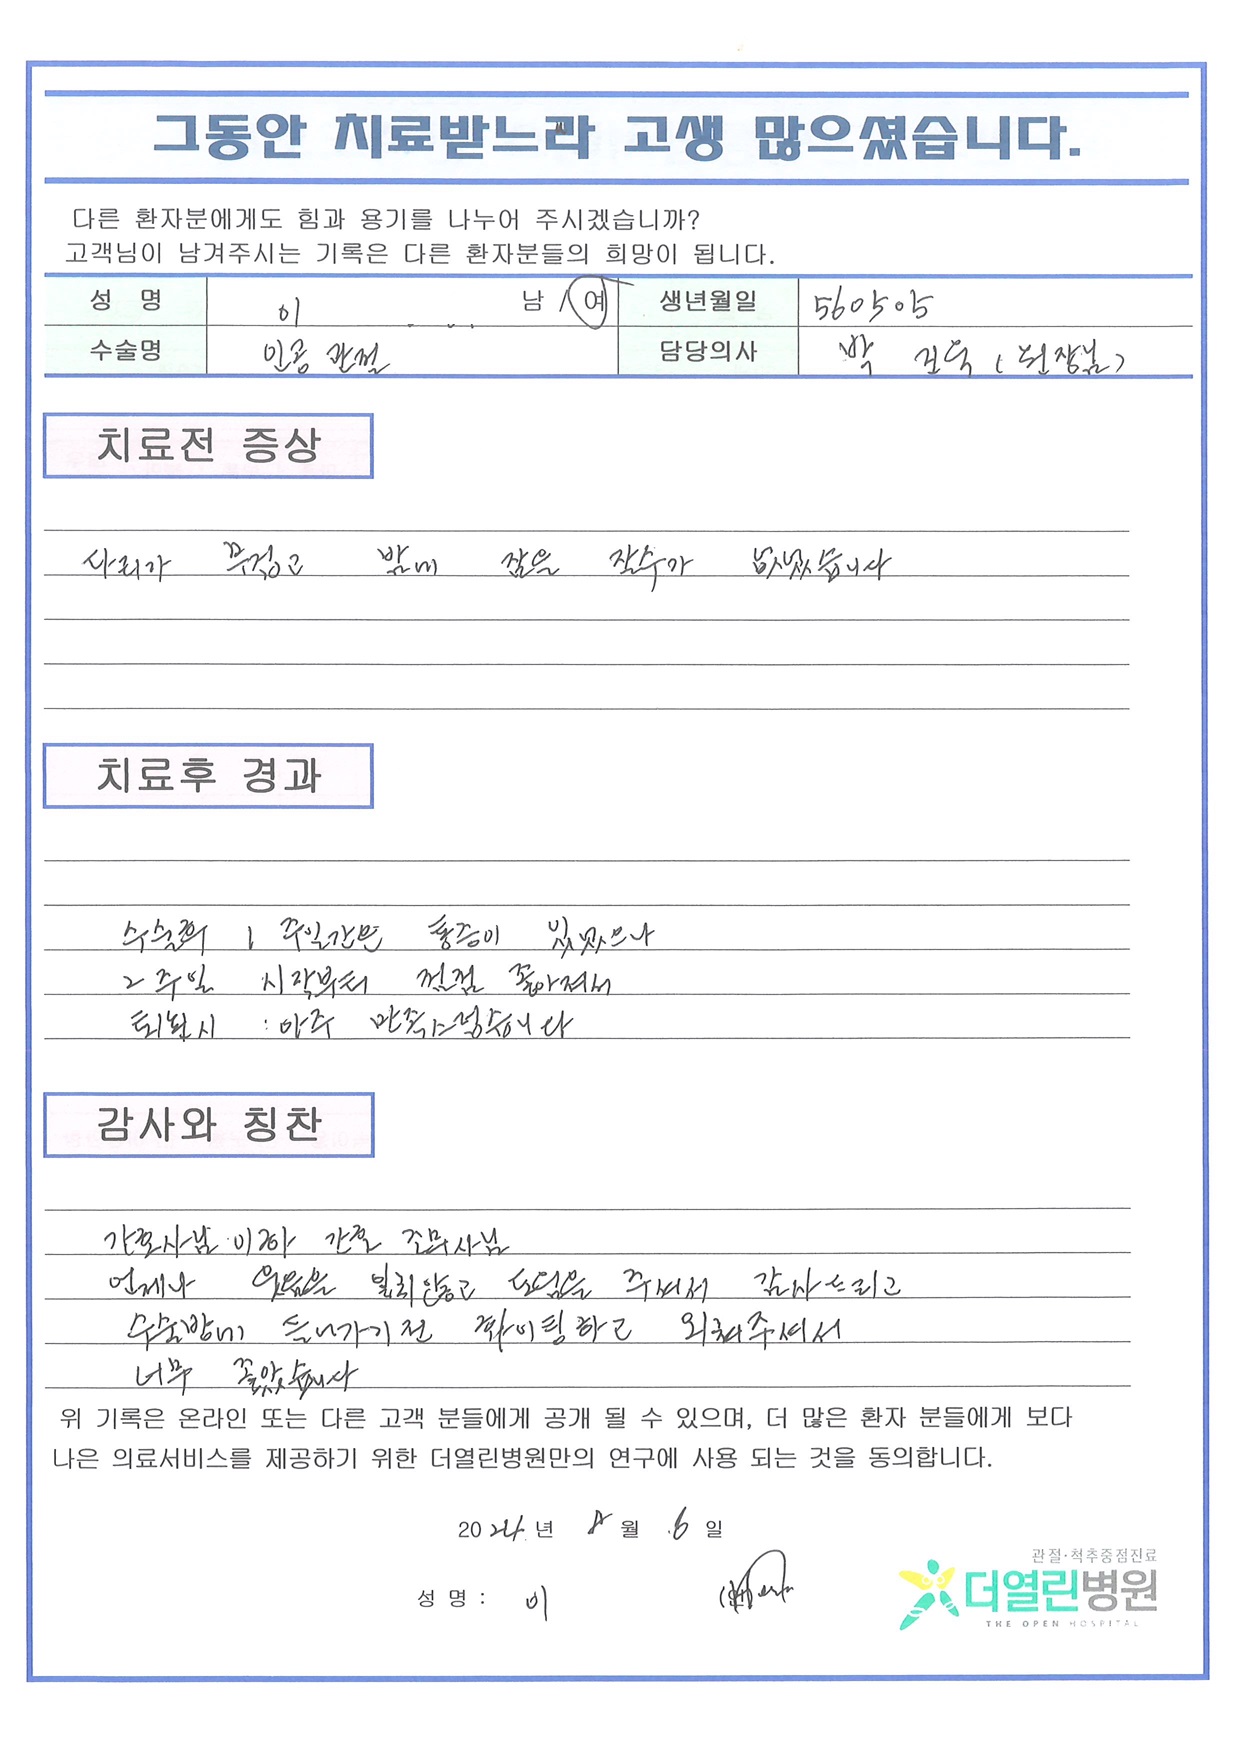 그동안 치료받느라 고생 많으셨습니다.
다른 환자분에게도 힘과 용기를 나누어 주시겠습니까?
고객님이 남겨주시는 기록은 다른 환자분들의 희망이 됩니다.
성 명 이 남 / 여 생년월일 560505
수술명 인공 관절 담당의사 박 (원장님)
치료전 증상
다리가 무겁고 밤에 잠을 잘수가 없었습니다
치료후 경과
수술후 1 주일간은 통증이 있었으나
2 주일 시작부터 점점 좋아져서
퇴원시 : 아주 만족스럽습니다
감사와 칭찬
간호사님 이하 간호 조무사님
언제나 웃음을 잃치않고 도덤을 주셔서 감사드리고
수술방에 들어가기전 화이팅하고 외쳐주셔서
너무 좋았습니다
위 기록은 온라인 또는 다른 고객 분들에게 공개 될 수 있으며, 더 많은 환자 분들에게 보다
나은 의료서비스를 제공하기 위한 더열린병원만의 연구에 사용 되는 것을 동의합니다.
2024년 8월 6일
관절·척추중점진료
더열린병원
THE OPEN HOSPITAL
성 명 : 이